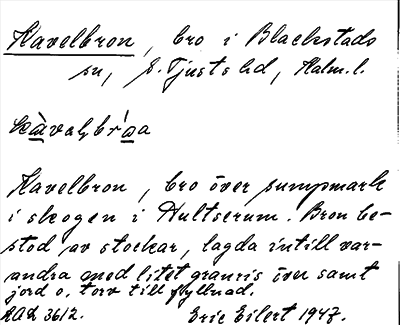 Kavelbron, bro i Blackstads
sn, S. Tjusts hd, Kalm.l.
kàvalˌbr'ɷa
Kavelbron, bro över sumpmark
i skogen i Hultserum. Bron be-
stod av stockar, lagda intill var-
andra med litet granris över samt
jord o. torv till fyllnad.
RAÄ 3612. Eric Eilert 1947.